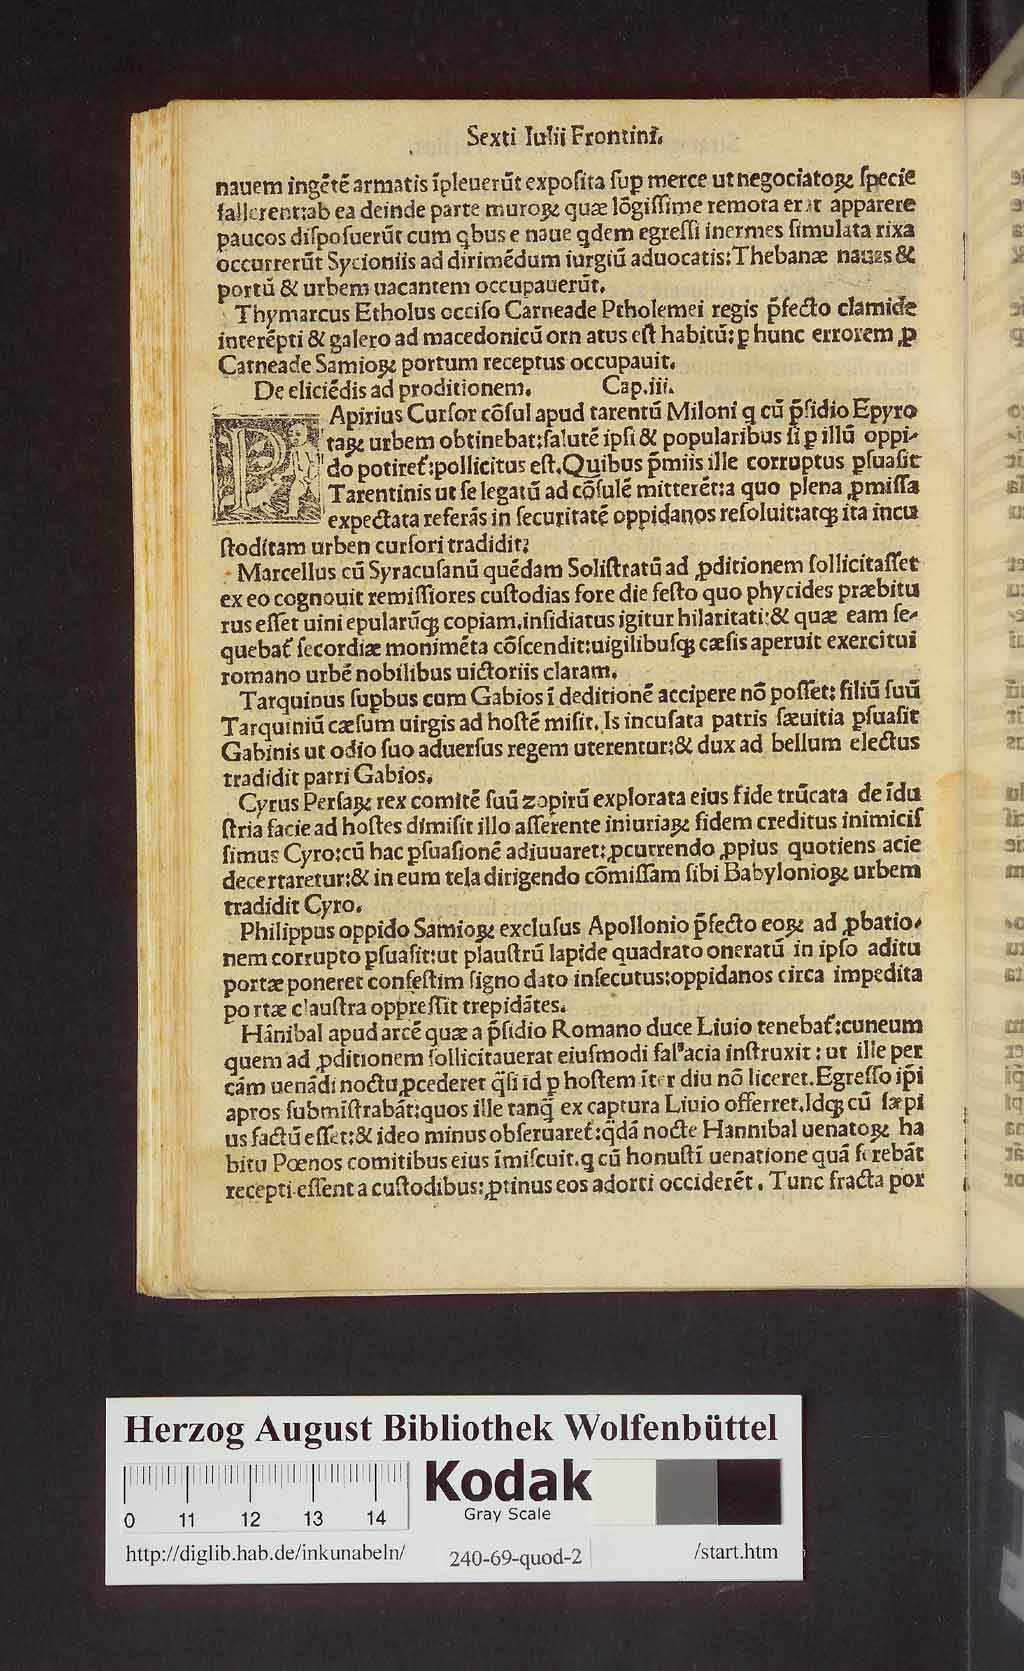 Sexti Iulii Frontini.
nauem ingẽtẽ armatis ĩpleuerũt exposita sup̱ merce ut negociatorꝝ specie
fallerent:ab ea deinde parte murorꝝ quæ lõgissime remota erat apparere
paucos disposuerũt cum qbus e naue qdem egressi inermes simulata rixa
occurrerũt Sycioniis ad dirimẽdum iurgiũ aduocatis:Thebanæ naues &
portũ & urbem uacantem occupauerũt.
Thymarcus Etholus occiso Carneade Ptholemei regis p̃fecto clamide
interẽpti & galero ad macedonicũ orn atus est habitũ: ꝑ hunc errorem ꝓ
Carneade Samiorꝝ portum receptus occupauit.
De eliciẽdis ad proditionem. Cap.iii.
PApirius Cursor cõsul apud tarentũ Miloni q cũ p̃sidio Epyro
tarꝝ urbem obtinebat:salutẽ ipsi & popularibus si ꝑ illũ oppi-
do potiret̃:pollicitus est.Quibus p̃miis ille corruptus ꝑsuasit
Tarentinis ut se legatũ ad cõsulẽ mitterẽt:a quo plena ꝓmissa
expectata referãs in securitatẽ oppidanos resoluit:atqꝫ ita incu
stoditam urben cursori tradidit:
Marcellus cũ Syracusanũ quẽdam Solistratũ ad ꝓditionem sollicitasset
ex eo cognouit remissiores custodias fore die festo quo phycides præbitu
rus esset uini epularũqꝫ copiam.insidiatus igitur hilaritati:& quæ eam se-
quebat̃ secordiæ monimẽta cõscendit:uigilibusqꝫ cæsis aperuit exercitui
romano urbẽ nobilibus uictoriis claram.
Tarquinus suꝑbus cum Gabios ĩ deditionẽ accipere nõ posset: filiũ suũ
Tarquiniũ cæsum uirgis ad hostẽ misit. Is incusata patris sæuitia ꝑsuasit
Gabinis ut odio suo aduersus regem uterentur:& dux ad bellum electus
tradidit patri Gabios.
Cyrus Persarꝝ rex comitẽ suũ zopirũ explorata eius fide trũcata de ĩdu
stria facie ad hostes dimisit illo asserente iniuriarꝝ fidem creditus inimicis
simus Cyro:cũ hac ꝑsuasionẽ adiuuaret:ꝓcurrendo ꝓpius quotiens acie
decertaretur:& in eum tela dirigendo cõmissam sibi Babyloniorꝝ urbem
tradidit Cyro.
Philippus oppido Samiorꝝ exclusus Apollonio p̃fecto eorꝝ ad ꝓbatio-
nem corrupto ꝑsuasit:ut plaustrũ lapide quadrato oneratũ in ipso aditu
portæ poneret confestim signo dato insecutus:oppidanos circa impedita
portæ claustra oppressit trepidãtes.
Hãnibal apud arcẽ quæ a p̃sidio Romano duce Liuio tenebat̃:cuneum
quem ad ꝓditionem sollicitauerat eiusmodi fallacia instruxit : ut ille per
cãm uenãdi noctu ꝓcederet q̃si id ꝑ hostem iter diu nõ liceret.Egresso ip̃i
apros submistrabãt:quos ille tanq̃ ex captura Liuio offerret.Idqꝫ cũ sæpi
us factũ esset:& ideo minus obseruaret̃:q̃dã nocte Hannibal uenatorꝝ ha
bitu Pœnos comitibus eius ĩmiscuit.q cũ honusti uenatione quã ferebãt
recepti essent a custodibus:ꝓtinus eos adorti occiderẽt . Tunc fracta por
Herzog August Bibliothek Wolfenbüttel
Kodak
Gray Scale
0 11 12 13 14
http://diglib.hab.de/inkunabeln/ 240-69-quod-2 /start.htm